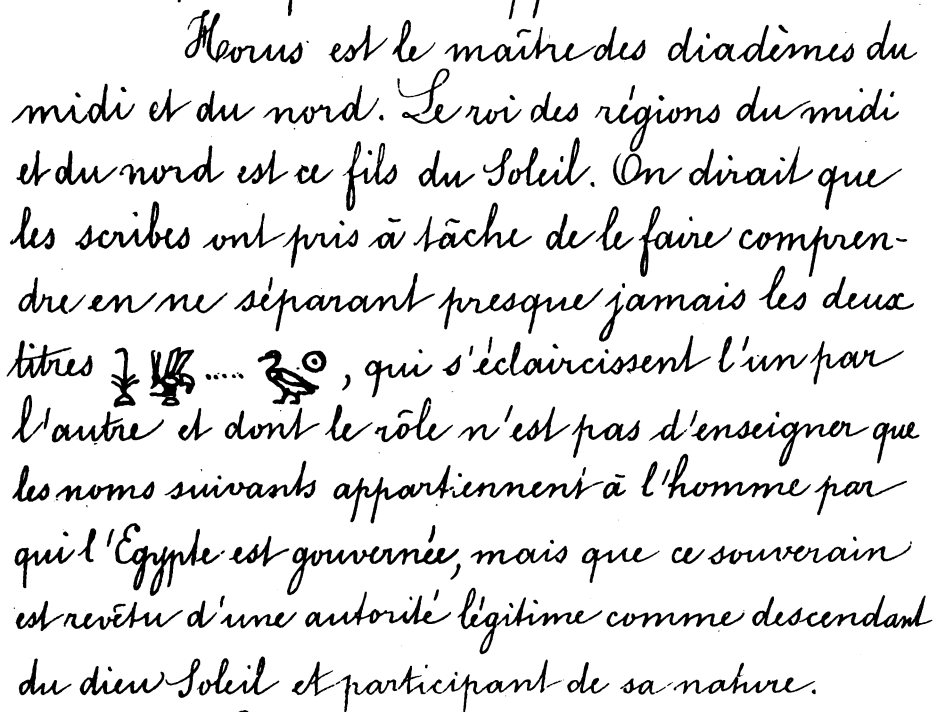 Horus est le maître des diadèmes du
midi et du nord. Le roi des régions du midi
et du nord est ce fils du Soleil. On dirait que
les scribes ont pris à tâche de le faire compren-
dre en ne séparant presque jamais les deux
titres 𓇓 𓆤 ..... 𓅭 𓇳, qui s'éclaircissent l'un par
l'autre et dont le rôle n'est pas d'enseigner que
les noms suivants appartiennent à l'homme par
qui l'Égypte est gouvernée, mais que ce souverain
est revêtu d'une autorité légitime comme descendant
du dieu Soleil et participant de sa nature.